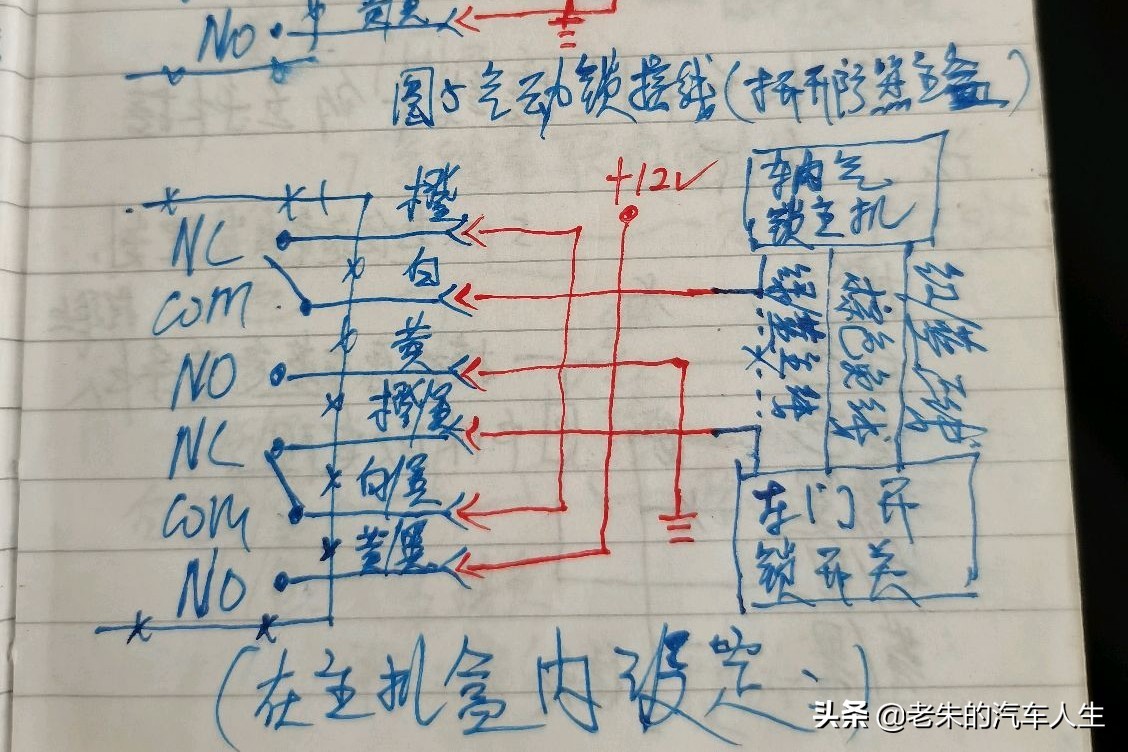 NO 黄黑
图5气动锁接线(拆开防盗主盒)
橙
+12V
车内气
锁主机
NC
白
COM
黄
NO
橙黑
NC
白黑
COM
黄黑
NO
车门开
锁开关
(在主机盒内设定)
头条 @老朱的汽车人生